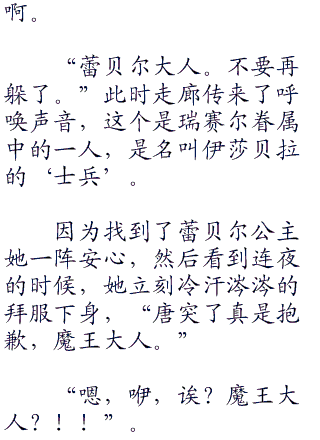 啊。
“蕾贝尔大人。不要再
躲了。”此时走廊传来了呼
唤声音，这个是瑞赛尔眷属
中的一人，是名叫伊莎贝拉
的‘士兵’。
因为找到了蕾贝尔公主
她一阵安心，然后看到连夜
的时候，她立刻冷汗涔涔的
拜服下身，“唐突了真是抱
歉，魔王大人。”
“嗯，咿，诶？魔王大
人？！！”。